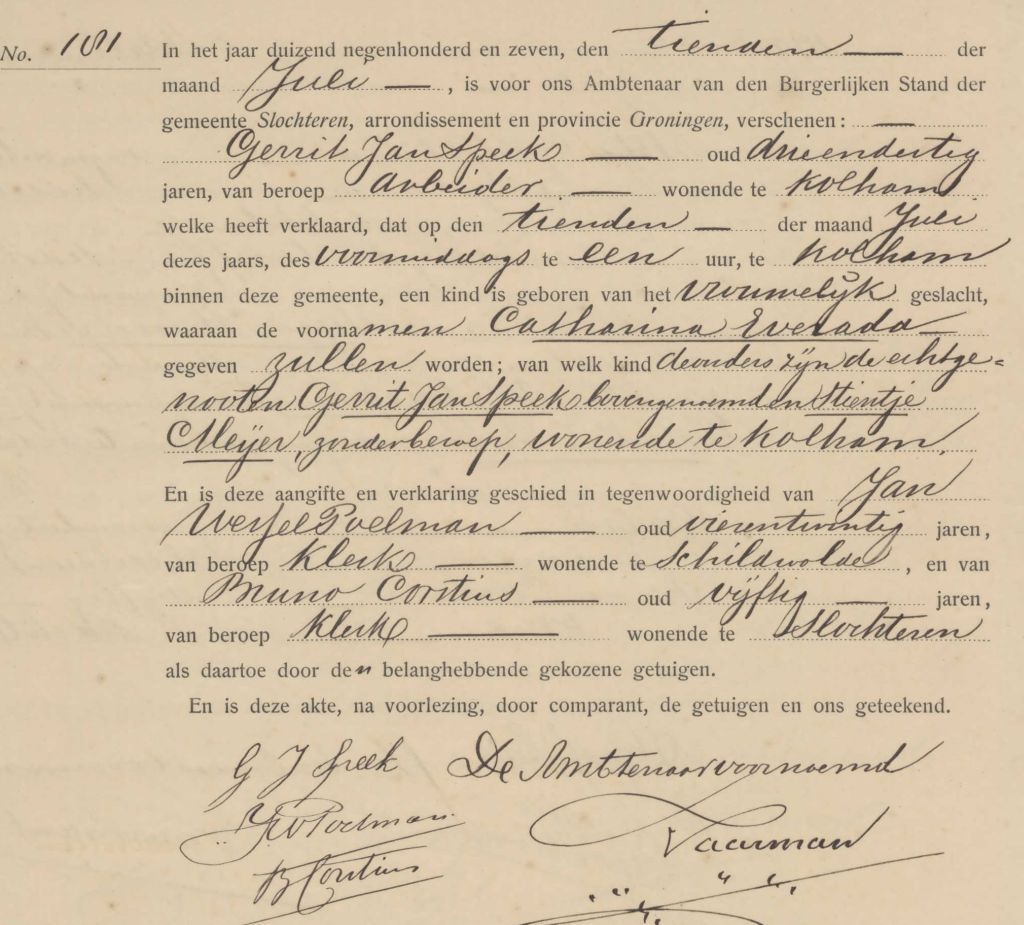 No. 181
In het jaar duizend negenhonderd en zeven, den tienden der
maand Juli, is voor ons Ambtenaar van den Burgerlijken Stand der
gemeente Slochteren, arrondissement en provincie Groningen, verschenen:
Gerrit Jan Speek oud drieendertig
jaren, van beroep arbeider wonende te Kolham
welke heeft verklaard, dat op den tienden der maand Juli
dezes jaars, des voormiddags te een uur, te Kolham
binnen deze gemeente, een kind is geboren van het vrouwelijk geslacht,
waaraan de voornamen Catharina Everada
gegeven zullen worden; van welk kind de ouders zijn de echtge=
nooten Gerrit Jan Speek bovengenoemd en Stientje
Meijer, zonder beroep, wonende te Kolham.
En is deze aangifte en verklaring geschied in tegenwoordigheid van Jan
Wessel Poelman oud vierentwintig jaren,
van beroep Klerk wonende te Schildwolde, en van
Bruno Corstius oud vijftig jaren,
van beroep Klerk wonende te Slochteren
als daartoe door den belanghebbende gekozene getuigen.
En is deze akte, na voorlezing, door comparant, de getuigen en ons geteekend.
G J Speek De Ambtenaar voornoemd
JW Poelman
B Corstius